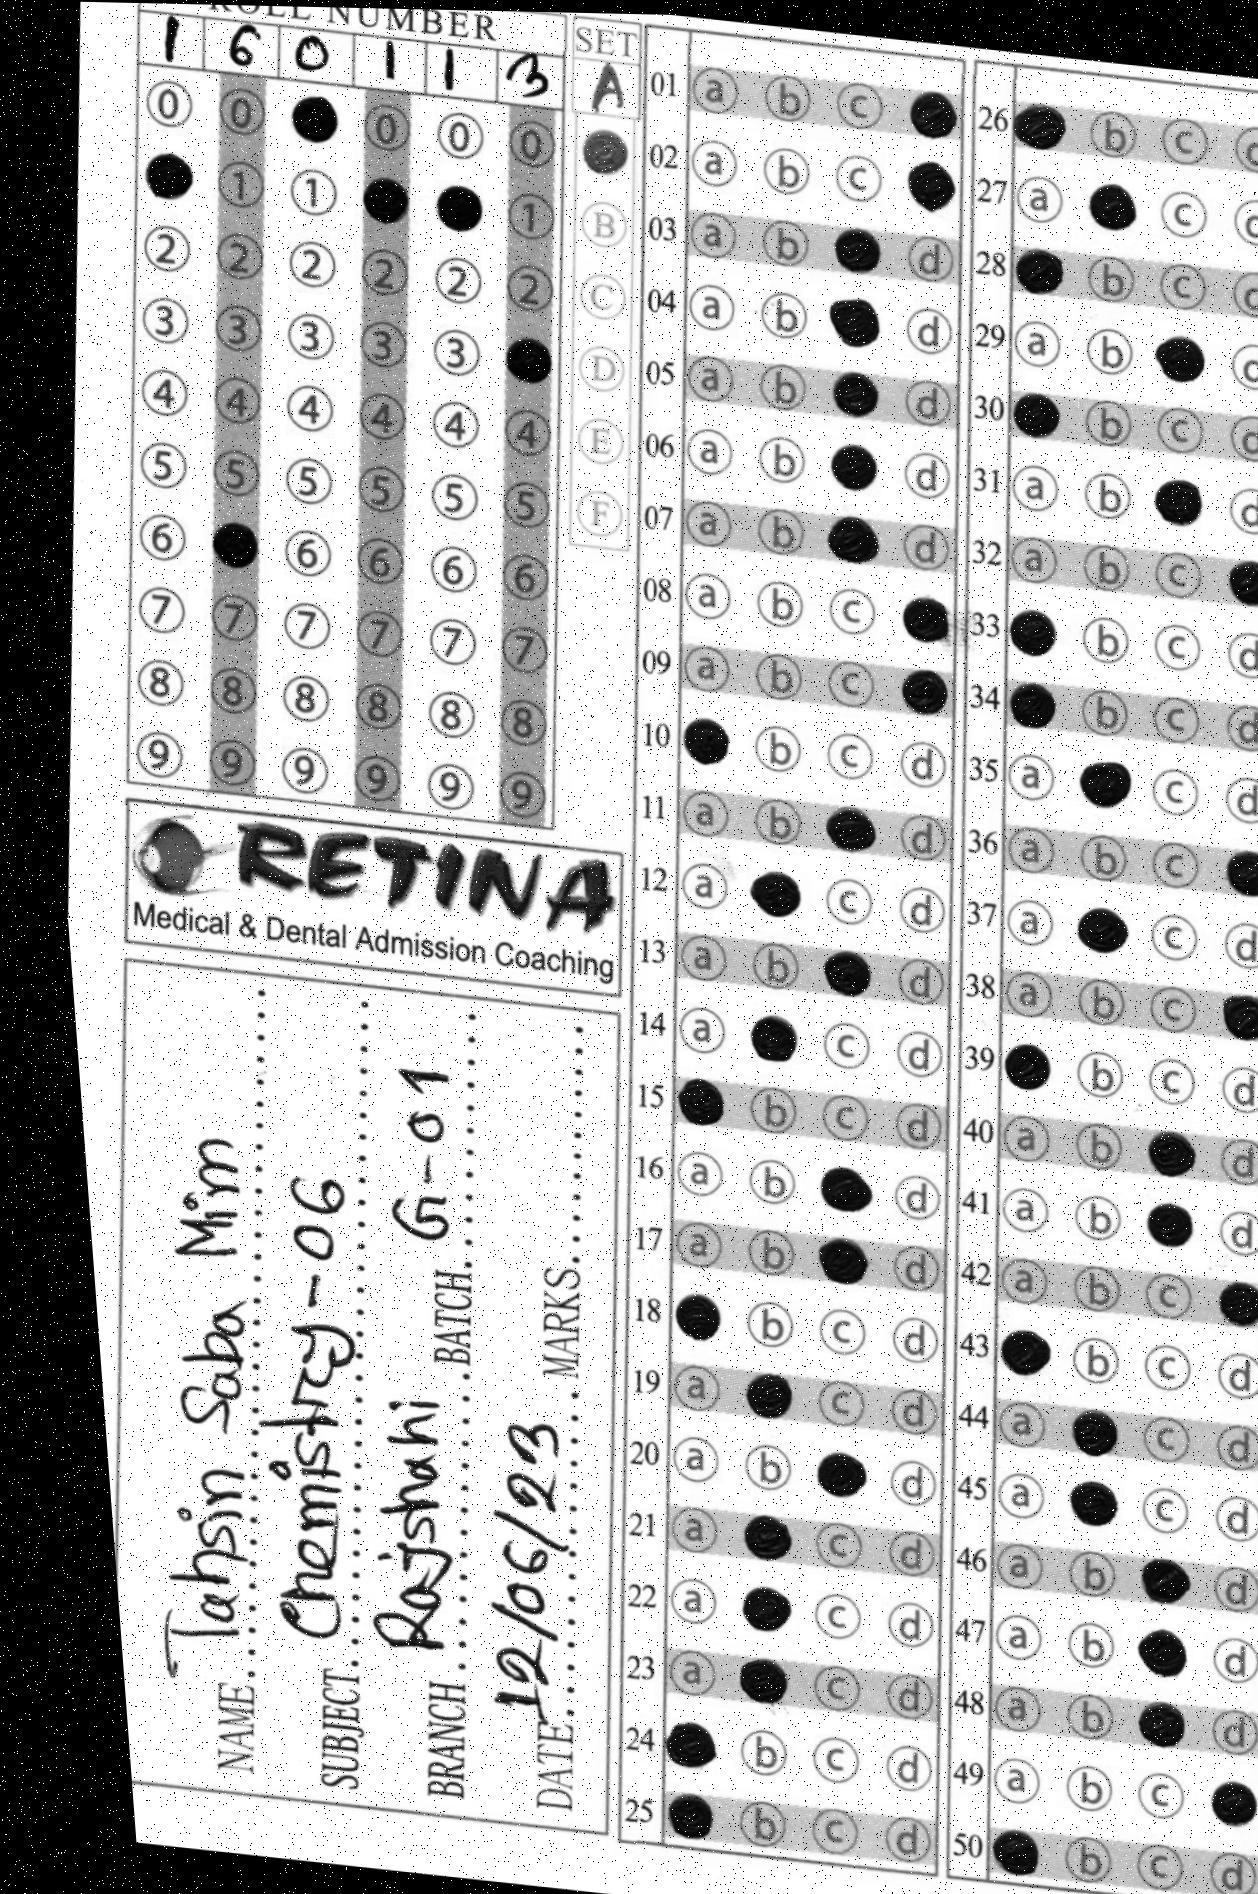 ROLL NUMBER
1 6 0 1 1 3
0 0 0 0 0
1 1 1
2 2 2 2 2 2
3 3 3 3 3
4 4 4 4 4 4
5 5 5 5 5 5
6 6 6 6 6
7 7 7 7 7 7
8 8 8 8 8 8
9 9 9 9 9 9
SET
A
B
C
D
E
F
RETINA
Medical & Dental Admission Coaching
NAME Tahsin Saba Mim
SUBJECT Chemistry-06
BRANCH Rajshahi BATCH G-01
DATE 12/06/23 MARKS
01 a b c
02 a b c
03 a b d
04 a b d
05 a b d
06 a b d
07 a b d
08 a b c
09 a b c
10 b c d
11 a b d
12 a c d
13 a b d
14 a c d
15 b c d
16 a b d
17 a b d
18 b c d
19 a c d
20 a b d
21 a c d
22 a c d
23 a c d
24 b c d
25 b c d
26 b c d
27 a c d
28 b c d
29 a b d
30 b c d
31 a b d
32 a b c
33 b c d
34 b c d
35 a c d
36 a b c
37 a c d
38 a b c
39 b c d
40 a b d
41 a b d
42 a b c
43 b c d
44 a c d
45 a c d
46 a b d
47 a b d
48 a b d
49 a b c
50 b c d